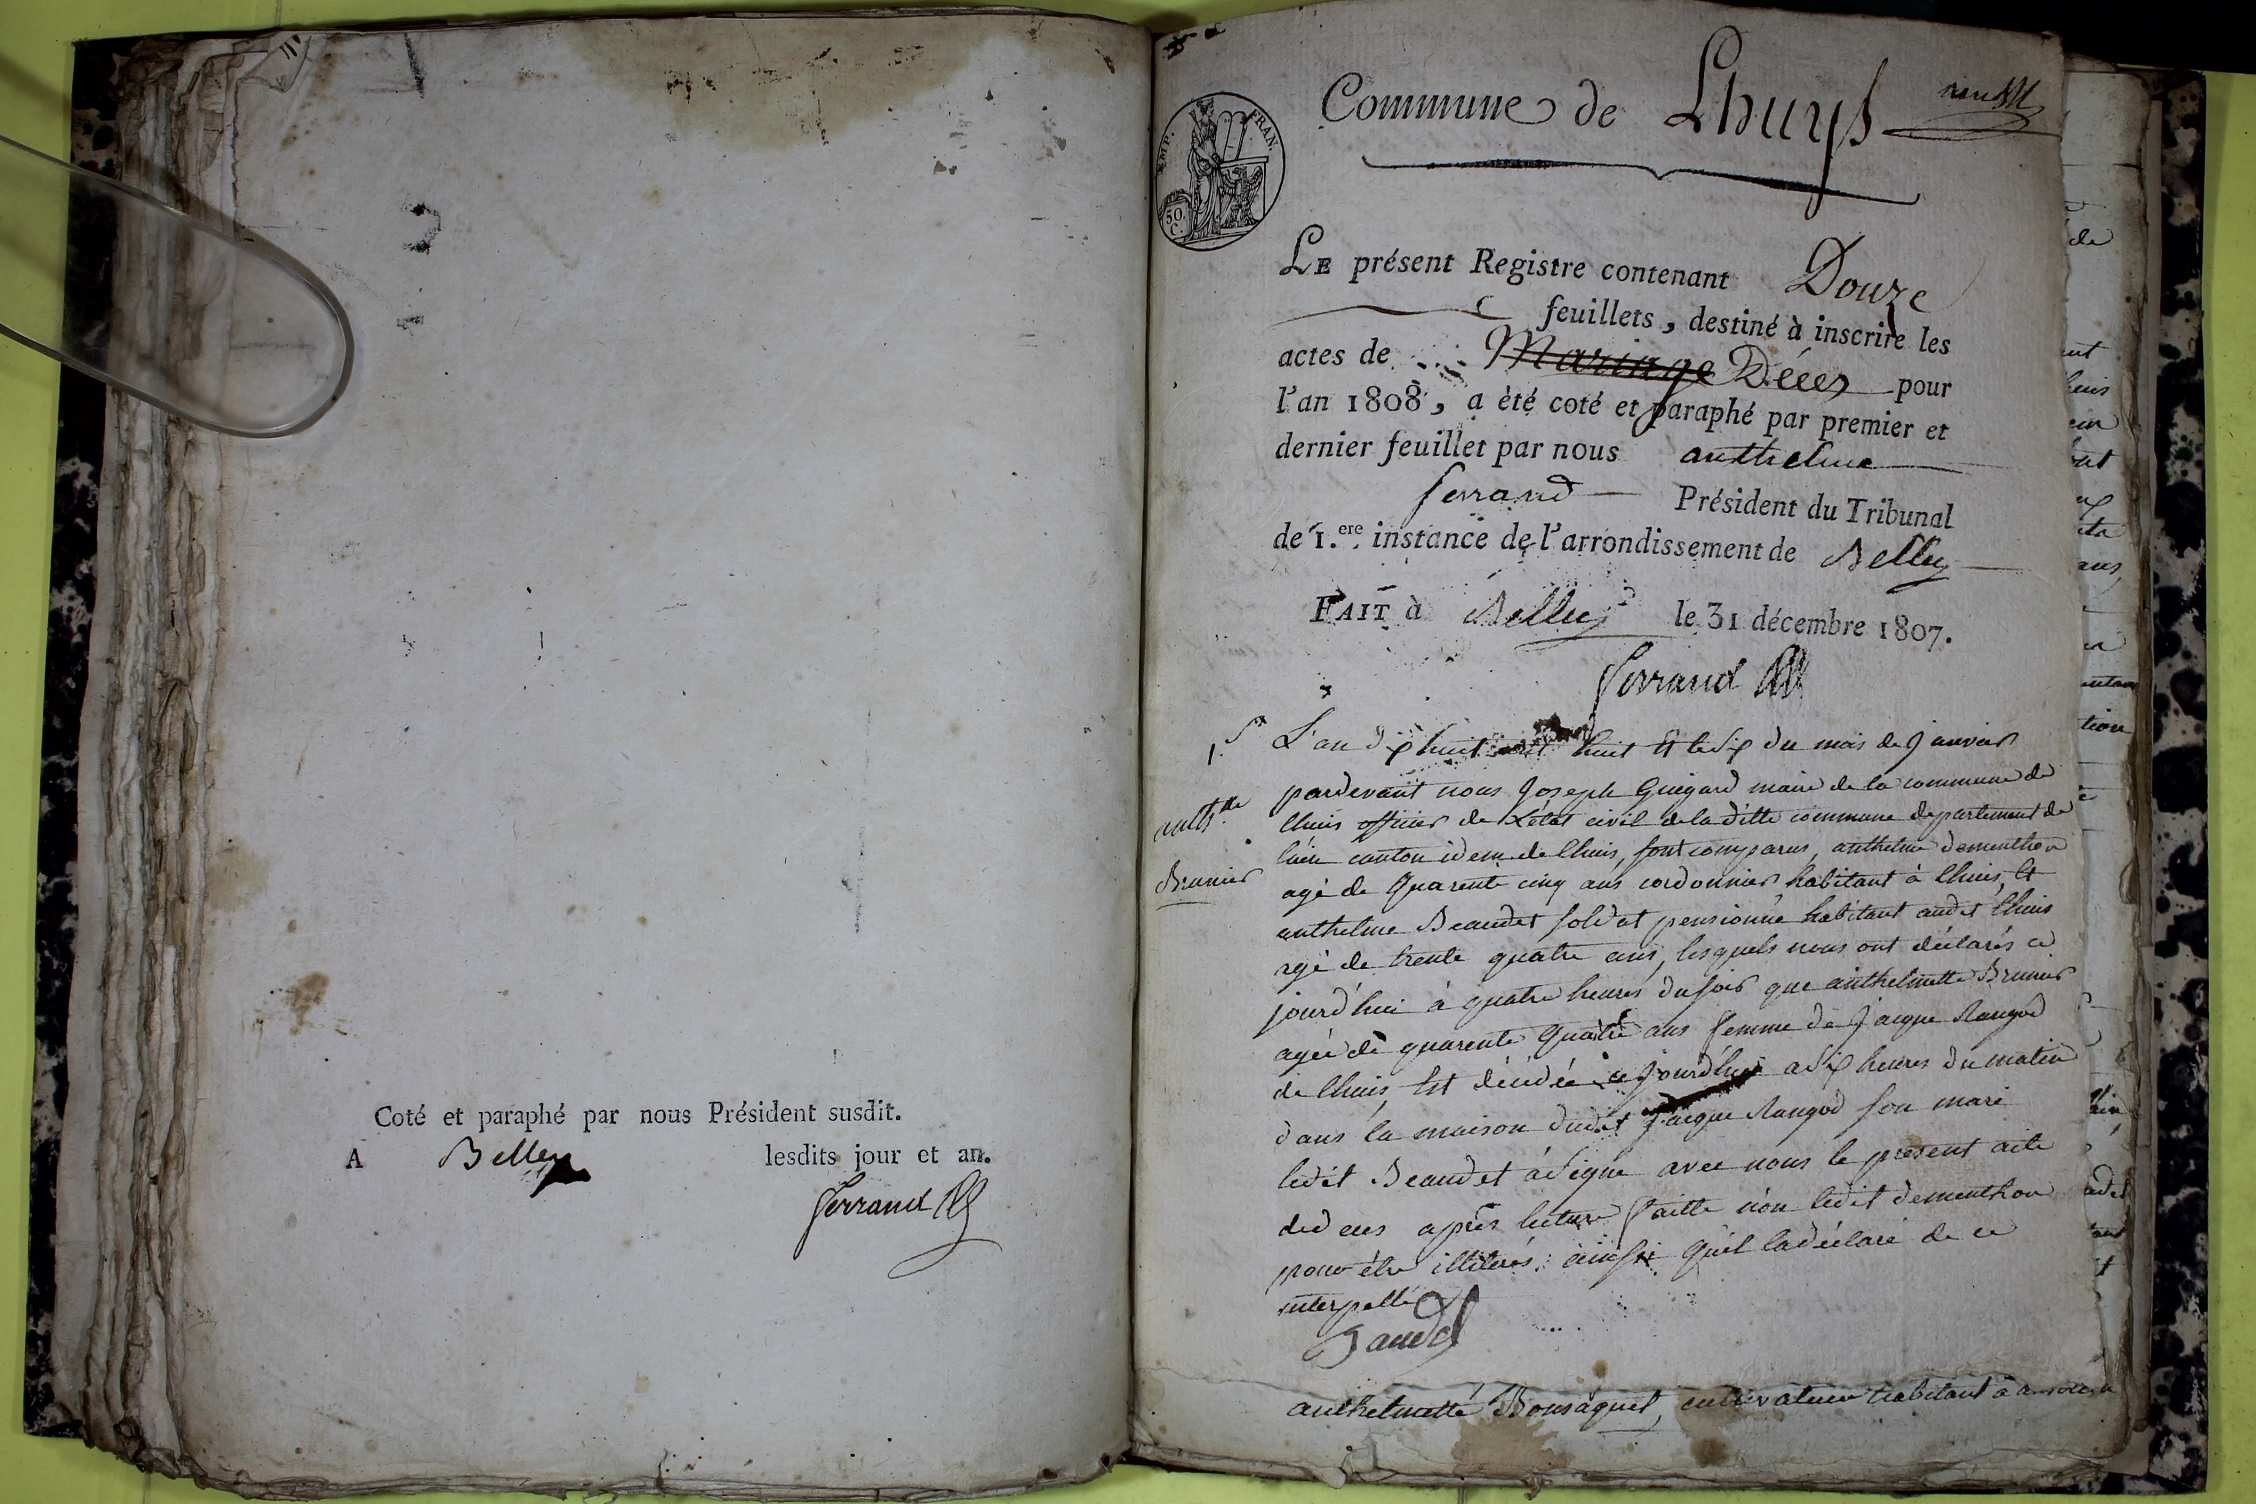 Coté et paraphé par nous Président susdit.
A Belley lesdits jour et an.
Ferrand
Commune de Lhuys
EMP. FRAN.
50. C.
LE présent Registre contenant Douze
feuillets, destiné à inscrire les
actes de Mariage Décès pour
l'an 1808, a èté coté et paraphé par premier et
dernier feuillet par nous anthelme
ferrand Président du Tribunal
de 1.ere instance de l'arrondissement de Belley
FAIT à Belley le 31 décembre 1807.
Ferrand
1.
anth.tte
Brunier
L'an dix huit cent huit Et le six du mois de Janvier
pardevant nous Joseph Guigard maire de la commune de
lhuis officier de L'état civil de la ditte commune departement de
lain canton idem de lhuis, sont comparus, anthelme dementhon
agé de Quarente cinq ans cordonnier habitant à lhuis, Et
anthelme Beaudet soldat pensionné habitant audit lhuis
agé de trente quatre ans, lesquels nous ont déclarés ce
jourd'hui à quatre heures du soir que anthelmette Brunier
agée de quarente Quatre ans femme de Jacque Rangod
de lhuis, Est décédée ce jourd'hui a dix heures du matin
dans la maison dudit Jacque Rangod son mari
ledit Beaudet à signé avec nous le present acte
de deces après lecture faitte non ledit dementhon
pour être illiterés ainsi qu'il la déclaré de ce
interpellé
Baudet
anthelmette Bonsaquet, cultivateur habitant à